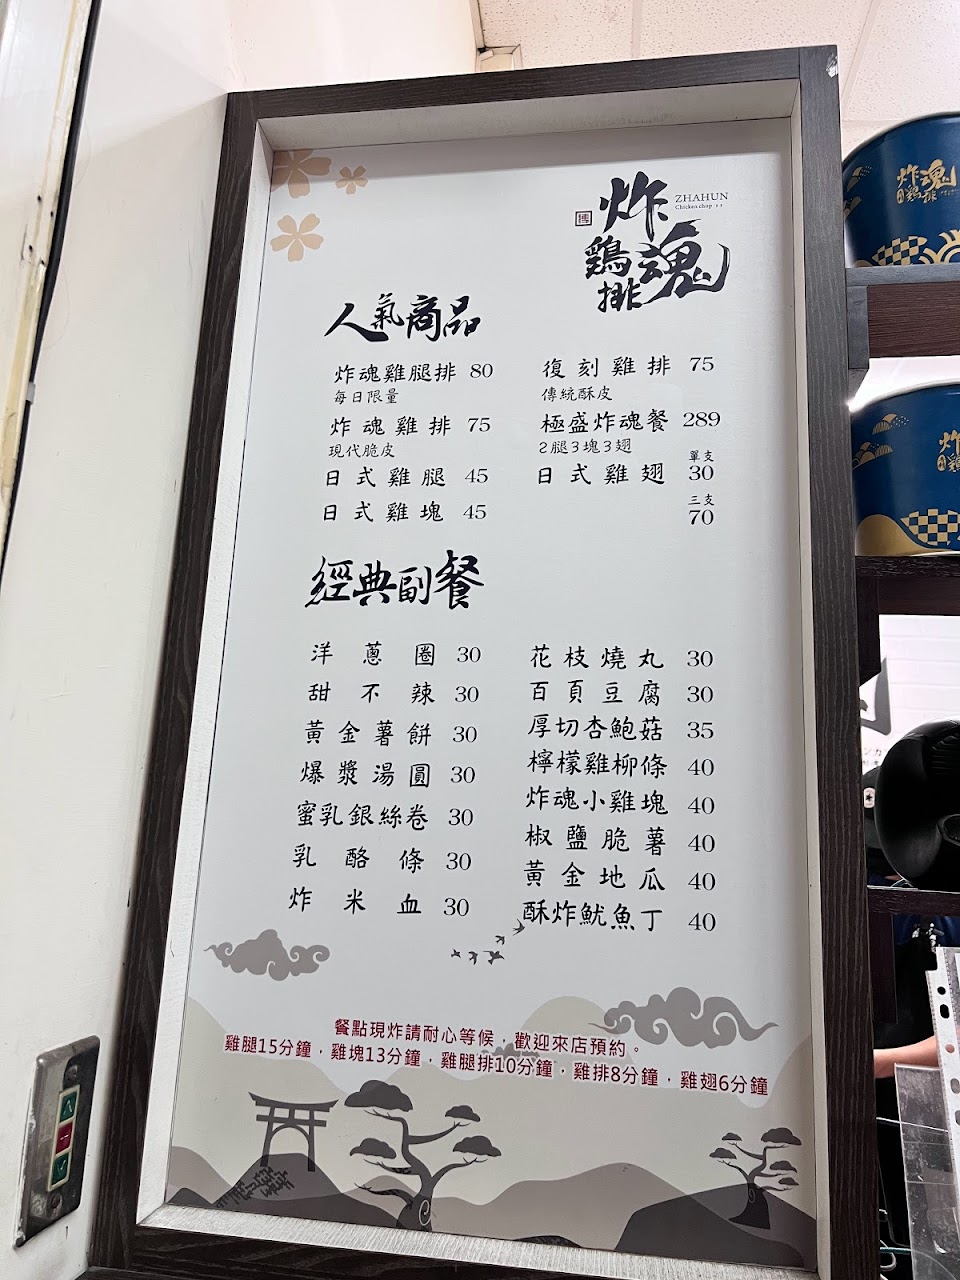 炸魂
ZHAHUN
Chicken chop
鷄排
人氣商品
炸魂雞腿排 80
每日限量
炸魂雞排 75
現代脆皮
日式雞腿 45
日式雞塊 45
復刻雞排 75
傳統酥皮
極盛炸魂餐 289
2腿3塊3翅
單支
日式雞翅 30
三支
70
經典副餐
洋蔥圈 30
甜不辣 30
黃金薯餅 30
爆漿湯圓 30
蜜乳銀絲卷 30
乳酪條 30
炸米血 30
花枝燒丸 30
百頁豆腐 30
厚切杏鮑菇 35
檸檬雞柳條 40
炸魂小雞塊 40
椒鹽脆薯 40
黃金地瓜 40
酥炸魷魚丁 40
餐點現炸請耐心等候，歡迎來店預約。
雞腿15分鐘，雞塊13分鐘，雞腿排10分鐘，雞排8分鐘，雞翅6分鐘
炸魂
鷄排